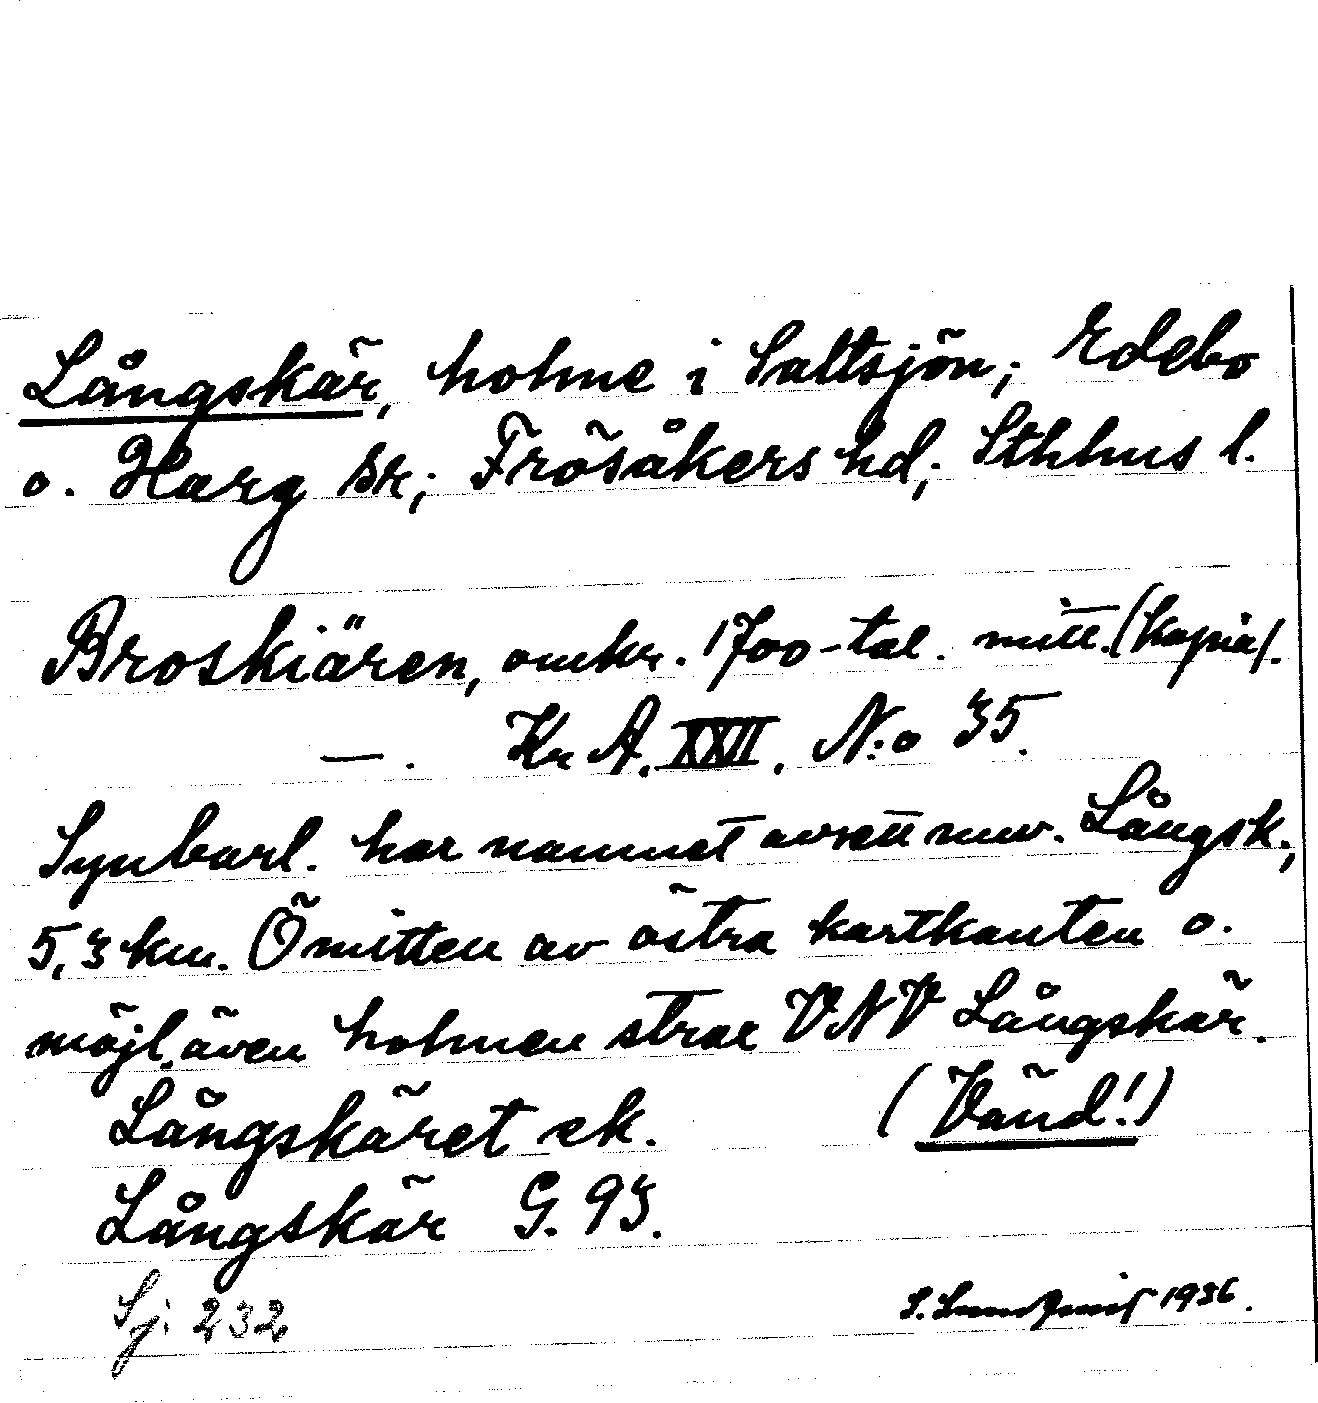 Långskär, holme i Saltsjön; Edebo
o. Harg sr; Frösåkers hd; Sthhus l.
Broskiären, omkr. 1700-tal. mitt. (kopia).
—. Kr A. XXII. N:o 35.
Synbarl. har namnet avsett nuv. Långsk.,
5,3 km. Ö mitten av östra kartkanten o.
möjl. även holmen strax VNV Långskär.
Långskäret ek. (Vänd!)
Långskär G. 93.
Sj. 232
S. Lundqvist 1936.